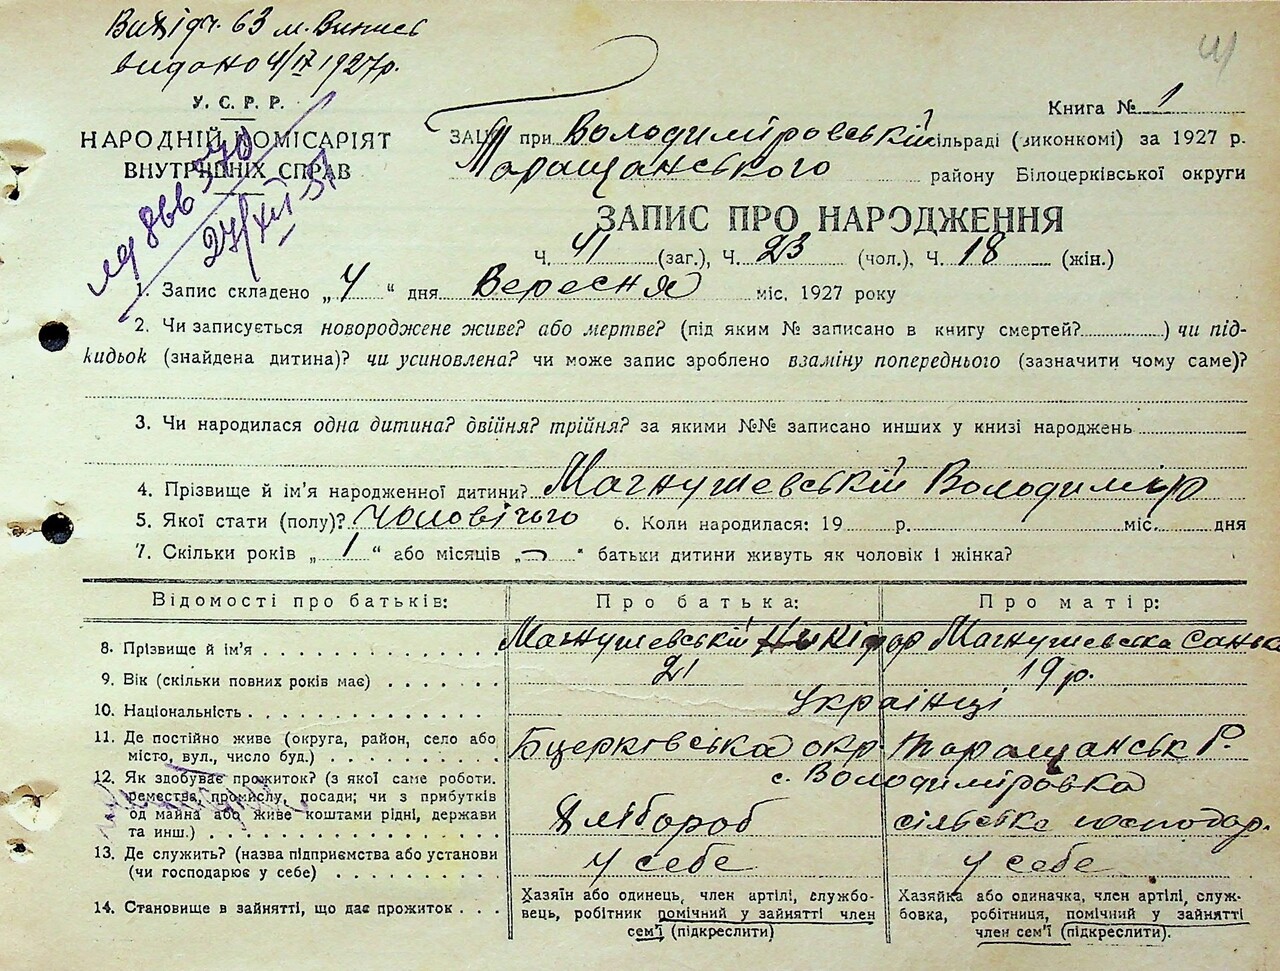 Вихідч. 63 м. Випись
видано 4/IX 1927р.
41
У. С. Р. Р.
НАРОДНІЙ КОМІСАРІЯТ
ВНУТРІШНІХ СПРАВ
27/XII 51
Книга № 1
ЗАЦС при Володиміровській сільраді (виконкомі) за 1927 р.
Таращанського району Білоцерківської округи
ЗАПИС ПРО НАРОДЖЕННЯ
Ч. 41 (заг.), Ч. 23 (чол.), Ч. 18 (жін.)
1. Запис складено „ 4 “ дня Вересня міс. 1927 року
2. Чи записується новороджене живе? або мертве? (під яким № записано в книгу смертей?) чи під-
кидьок (знайдена дитина)? чи усиновлена? чи може запис зроблено взаміну попереднього (зазначити чому саме)?
3. Чи народилася одна дитина? двійня? трійня? за якими №№ записано инших у книзі народжень
4. Прізвище й ім'я народженної дитини? Магнушевській Володимір
5. Якої стати (полу)? Чоловічого 6. Коли народилася: 19 р. міс. дня
7. Скільки років „ 1 “ або місяців „ - “ батьки дитини живуть як чоловік і жінка?
Відомості про батьків: Про батька: Про матір:
8. Прізвище й ім'я Магнушевській Никіфор Магнушевська Санька
9. Вік (скільки повних років має) 21 19 р.
10. Національність Українці
11. Де постійно живе (округа, район, село або
місто, вул., число буд.) Бцерковська окр Таращанськ Р.
с. Володиміровка
12. Як здобуває прожиток? (з якої саме роботи,
ремества, промислу, посади; чи з прибутків
од майна або живе коштами рідні, держави
та инш.) Хлібороб сільська господар.
13. Де служить? (назва підприємства або установи
(чи господарює у себе) у себе у себе
14. Становище в зайнятті, що дає прожиток
Хазяїн або одинець, член артілі, службо-
вець, робітник помічний у зайнятті член
сем'ї (підкреслити)
Хазяйка або одиначка, член артілі, служ-
бовка, робітниця, помічний у зайнятті
член сем'ї (підкреслити).